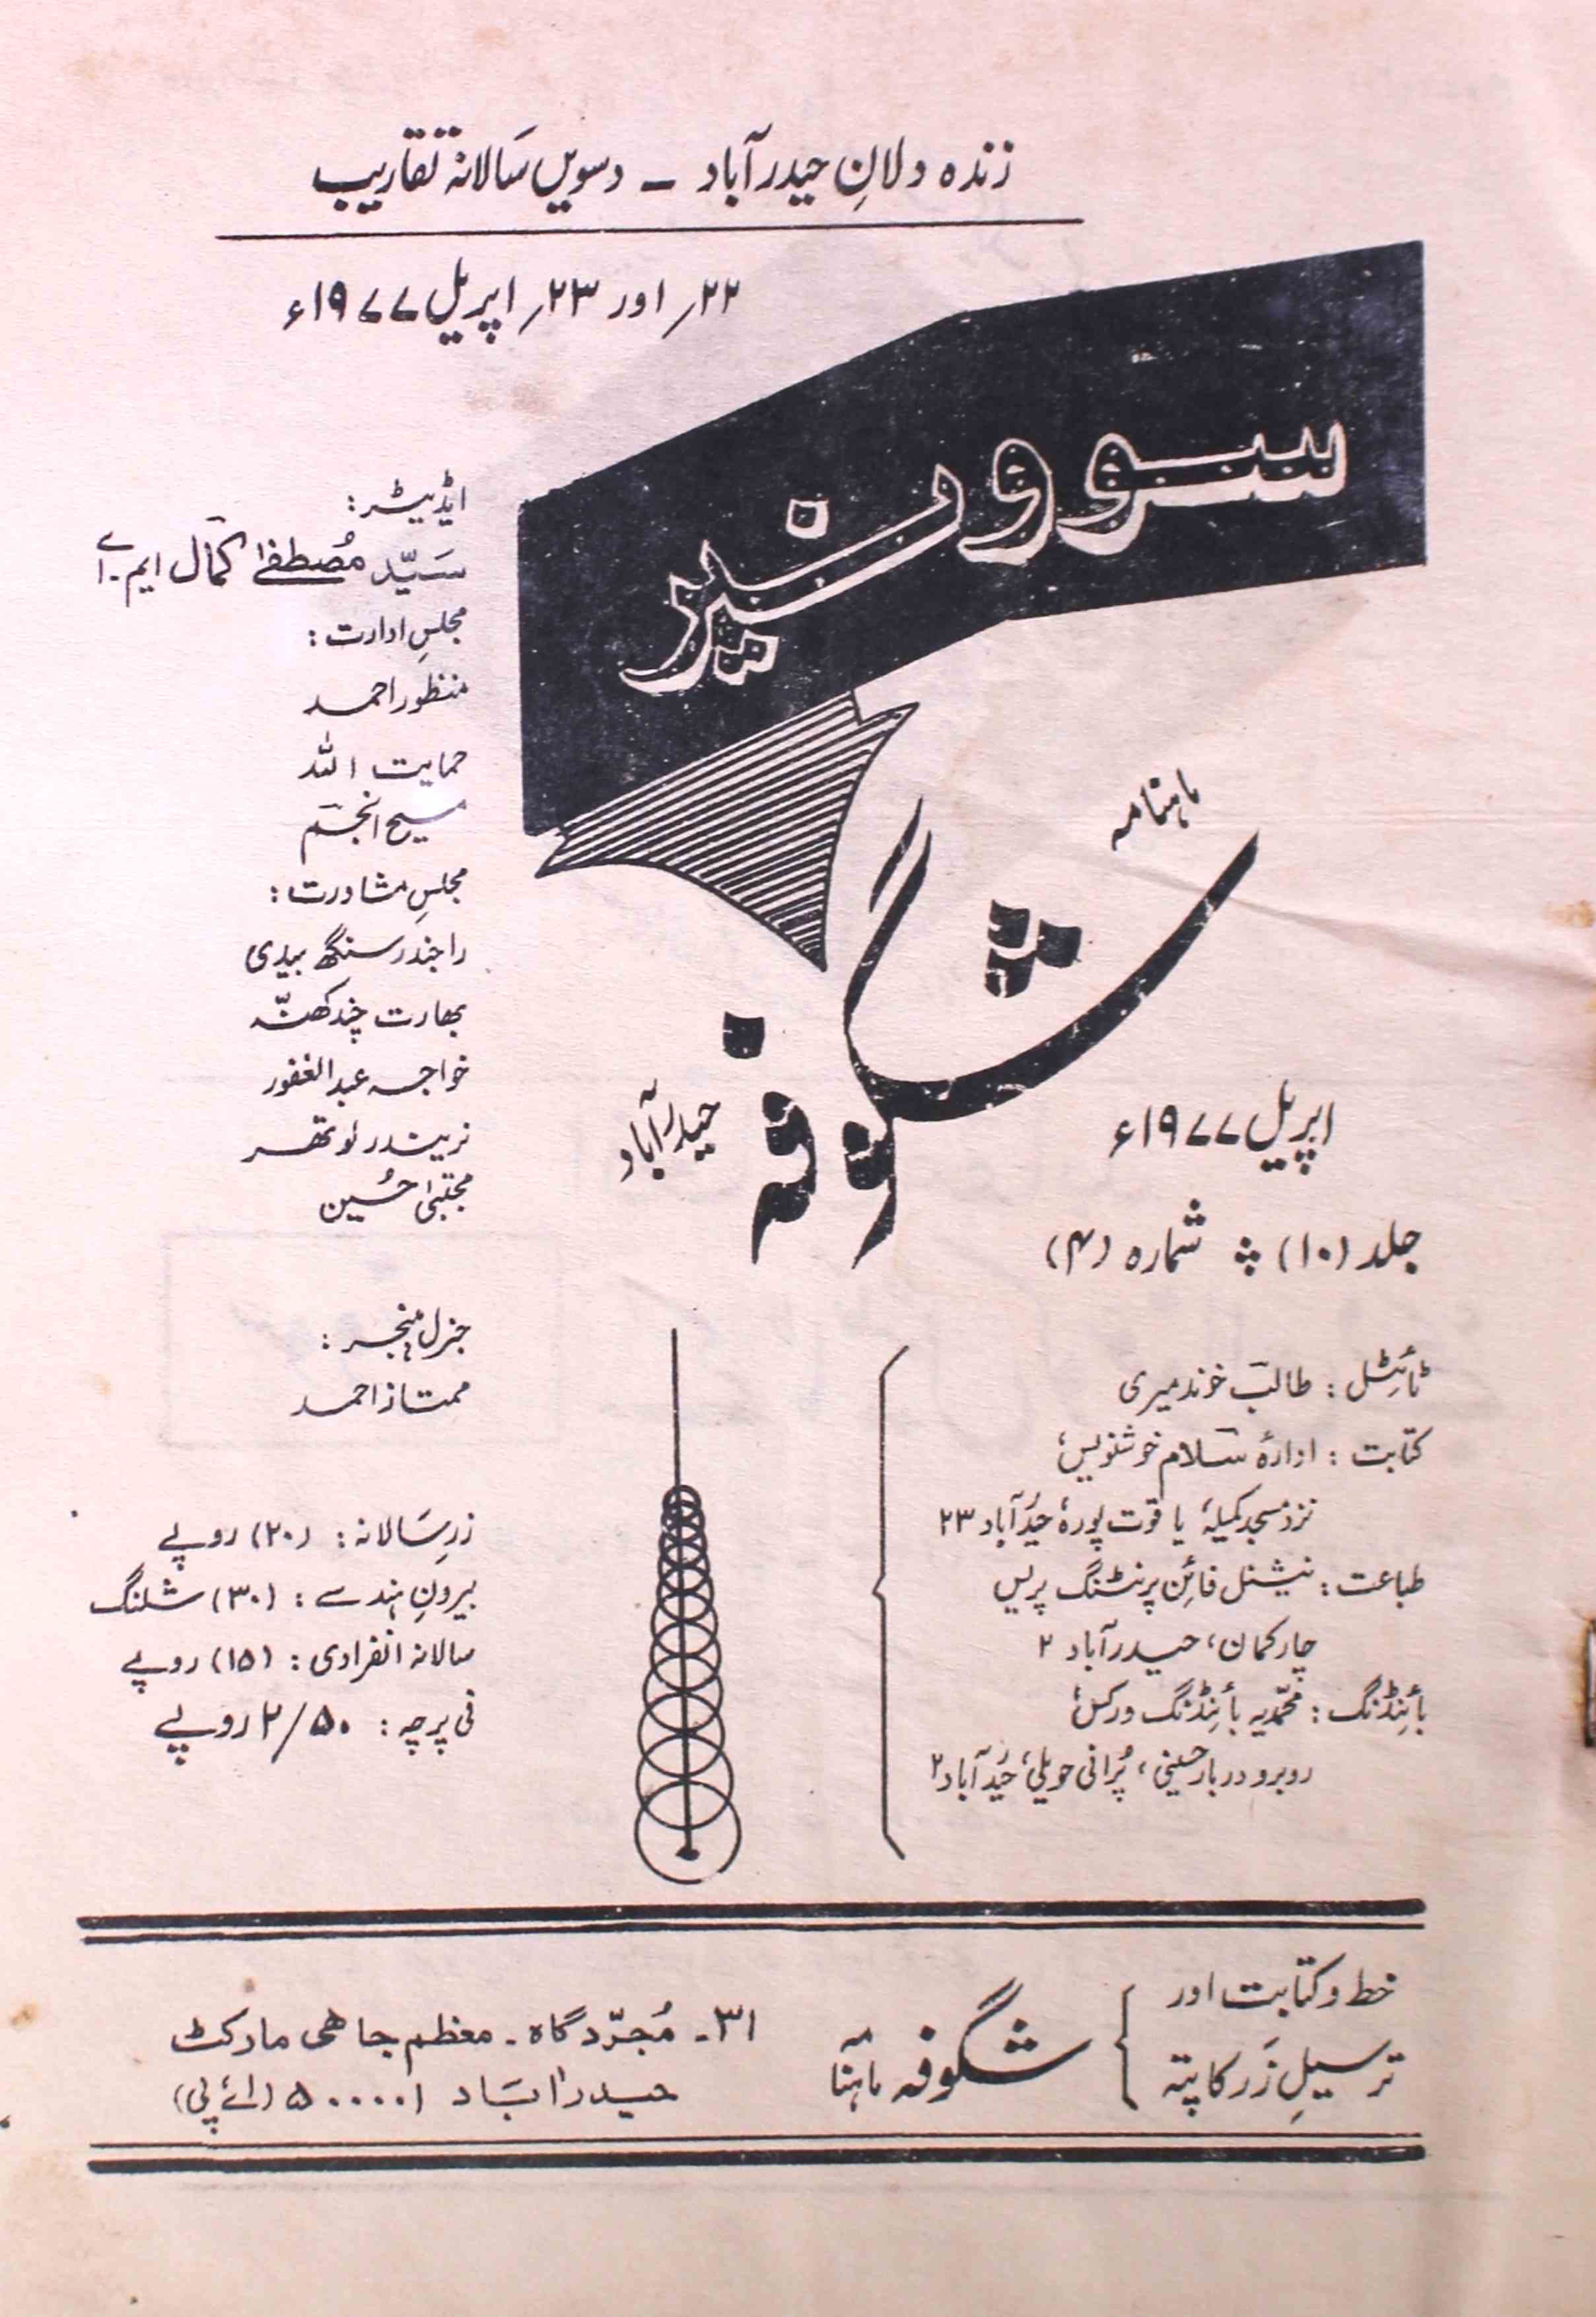 زندہ دلانِ حیدرآباد ـ دسویں سالانہ تقاریب
۲۲؍ اور ۲۳؍ اپریل ۱۹۷۷ء
سوونیر
ماہنامہ
شگوفہ
حیدرآباد
اپریل ۱۹۷۷ء
جلد (۱۰) شماره (۴)
ایڈیٹر:
سیّد مُصطفےٰ کمال ایم۔اے
مجلسِ ادارت:
منظور احمد
حمایت اللہ
مسیح انجم
مجلسِ مشاورت:
راجندر سنگھ بیدی
بھارت چند کھنّہ
خواجہ عبدالغفور
نریندر لوتھر
مجتبیٰ حُسین
جنرل منیجر:
ممتاز احمد
زرِ سالانہ: (۲۰) روپے
بیرونِ ہند سے: (۳۰) شلنگ
سالانہ انفرادی: (۱۵) روپے
فی پرچہ: ۲/۵۰ روپے
ٹائیٹل: طالب خوندمیری
کتابت: ادارۂ سلام خوشنویس،
نزد مسجد کمیلہ، یاقوت پورہ، حیدرآباد ۲۳
طباعت: نیشنل فائن پرنٹنگ پریس
چارکمان، حیدرآباد ۲
بائنڈنگ: محمّدیہ بائنڈنگ ورکس،
روبرو دربار حسینی، پُرانی حویلی، حیدرآباد ۲
خط و کتابت اور
ترسیلِ زَر کا پتہ
ماہنامہ شگوفہ
۳۱۔ مُجرّدگاہ۔ معظم جاہی مارکٹ
حیدرآباد ۵۰۰۰۰۱ (اے پی)